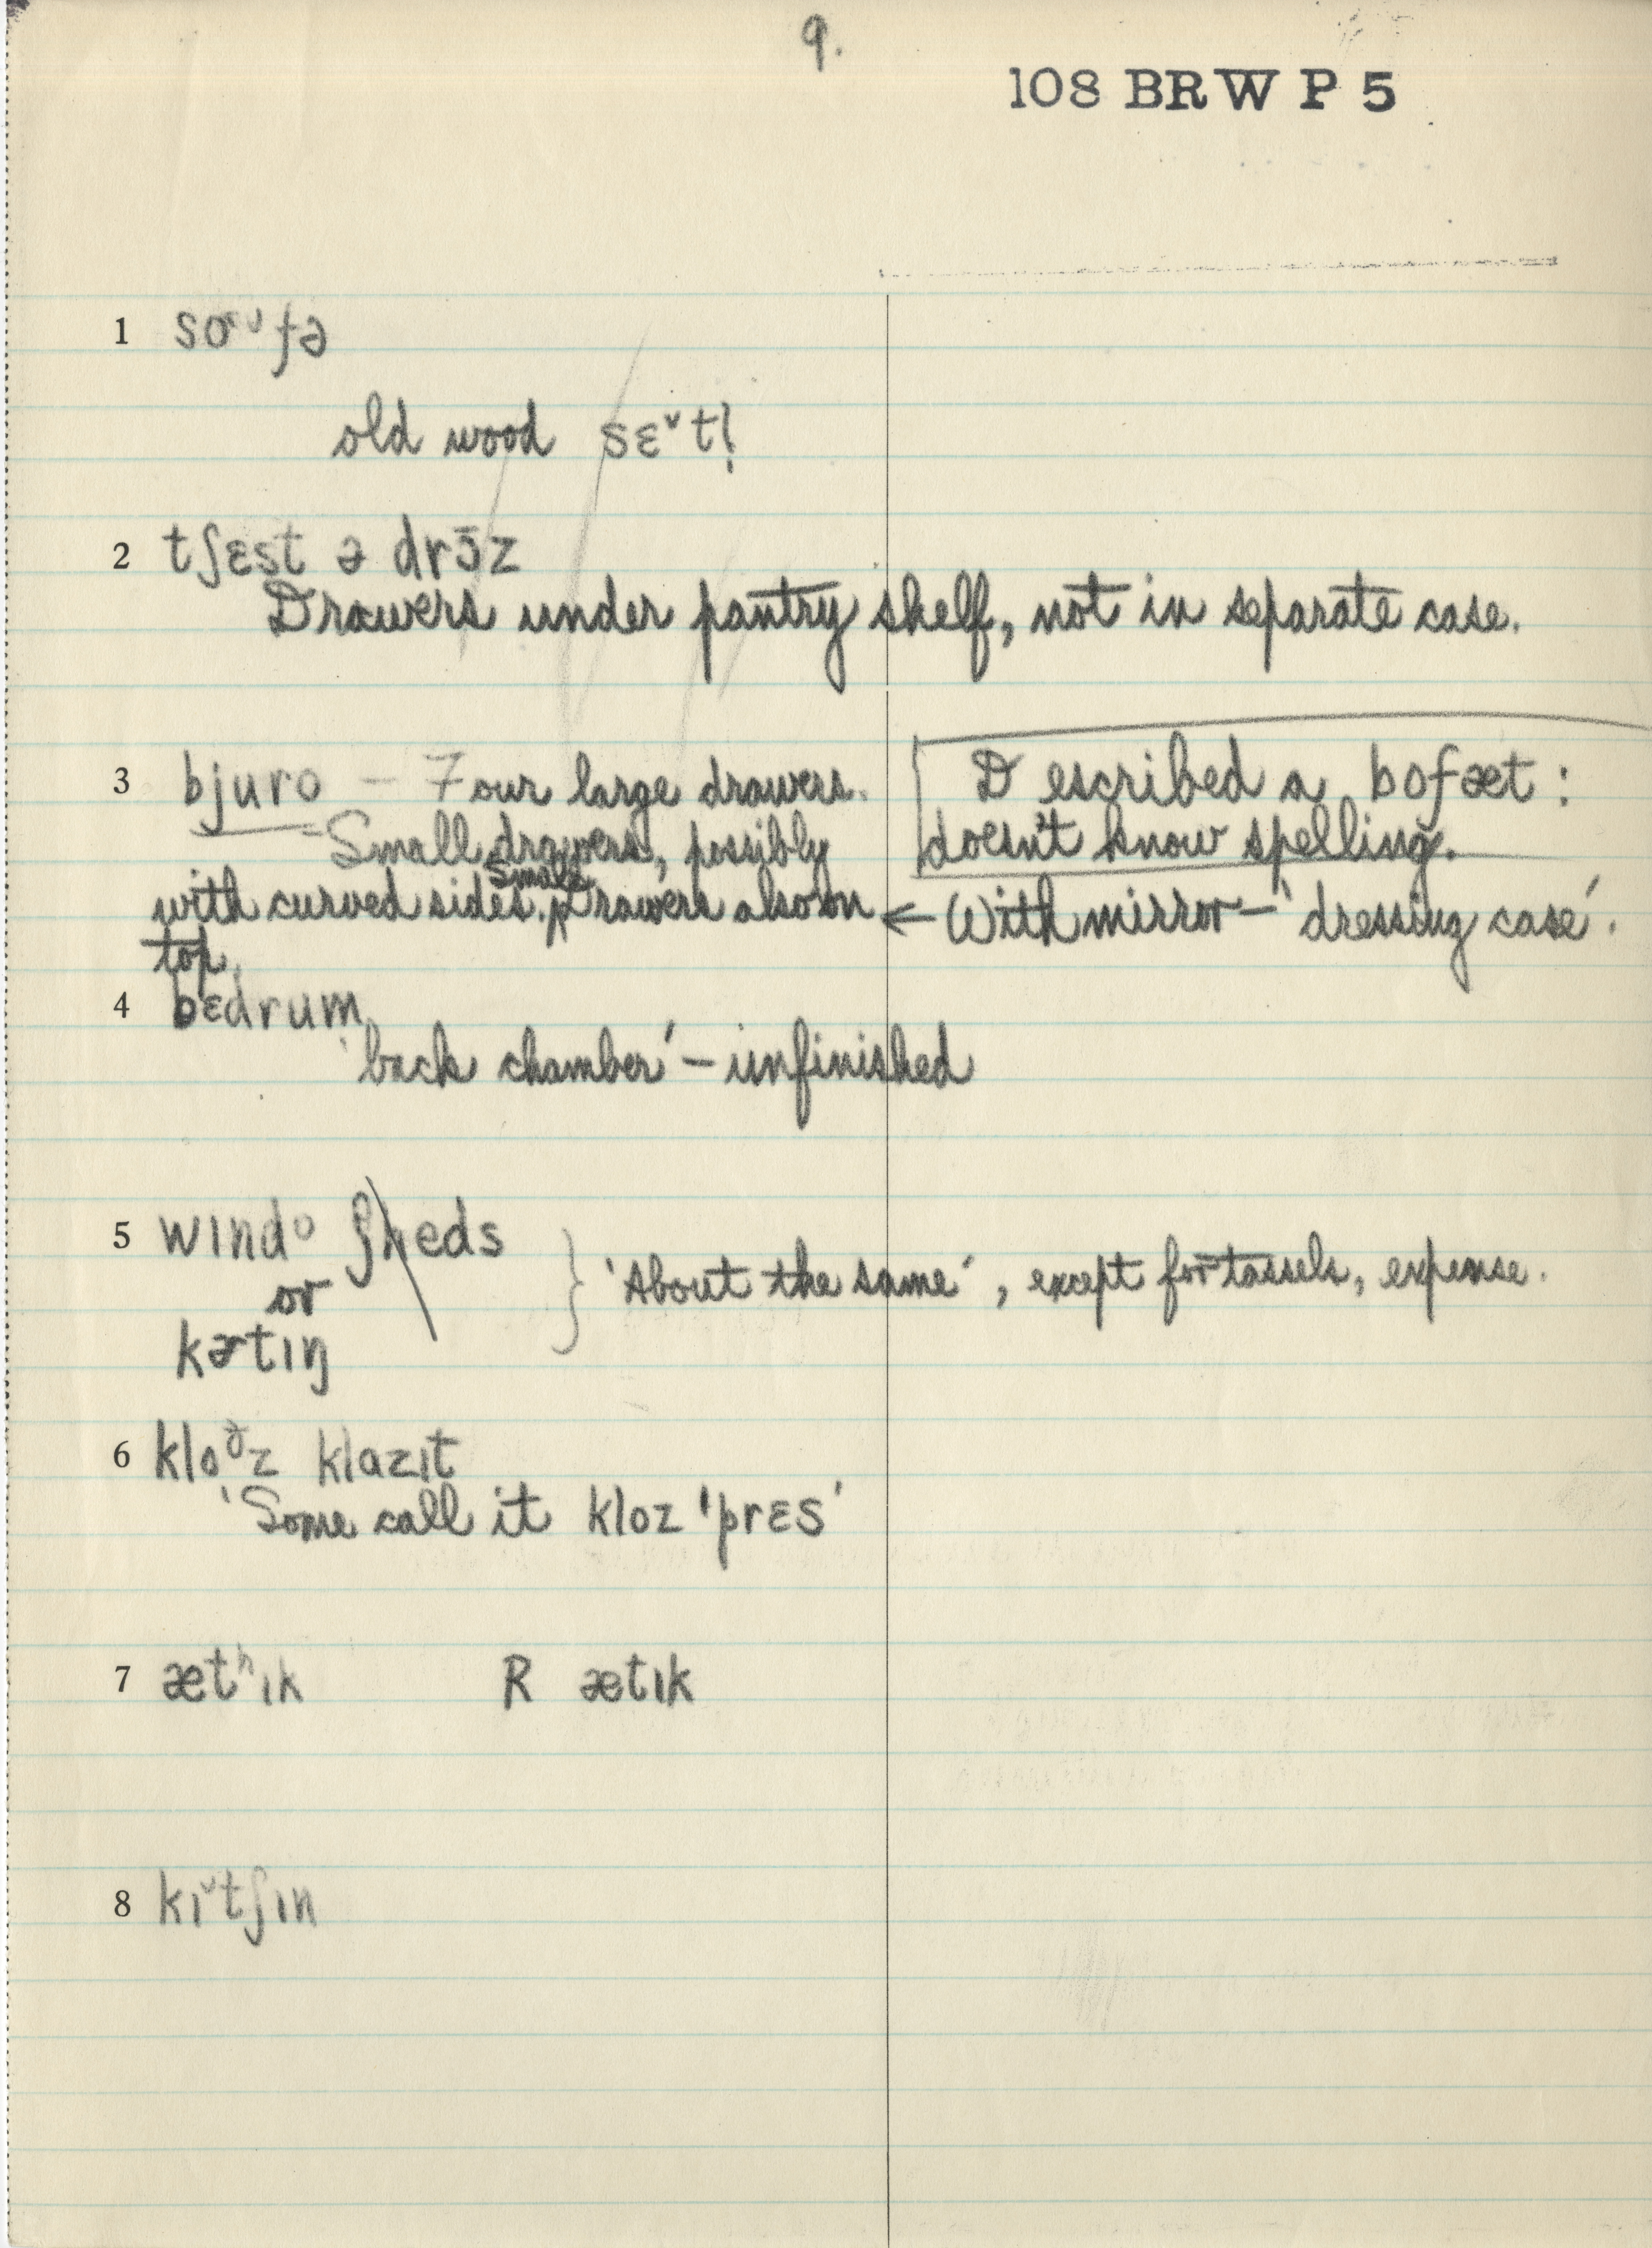 9.
108 BRW P 5
1 soᵁfə
old wood sɛ˅tḷ
2 tʃɛst ə drɔ̄z
Drawers under pantry shelf, not in separate case.
3 bjuro – Four large drawers.
Small drawers, possibly
with curved sides. Small Drawers also on
top.
Described a bofæt:
doesn't know spelling.
← With mirror – 'dressing case'.
4 bɛdrum
'back chamber' – unfinished
5 wɪndᵒ ʃheds
or
kɚtɪŋ
} 'About the same', except for tassels, expense.
6 kloᶞz klazɪt
'Some call it kloz 'prɛs'
7 ætʰɪk R ætɪk
8 kɪ˅tʃɪn